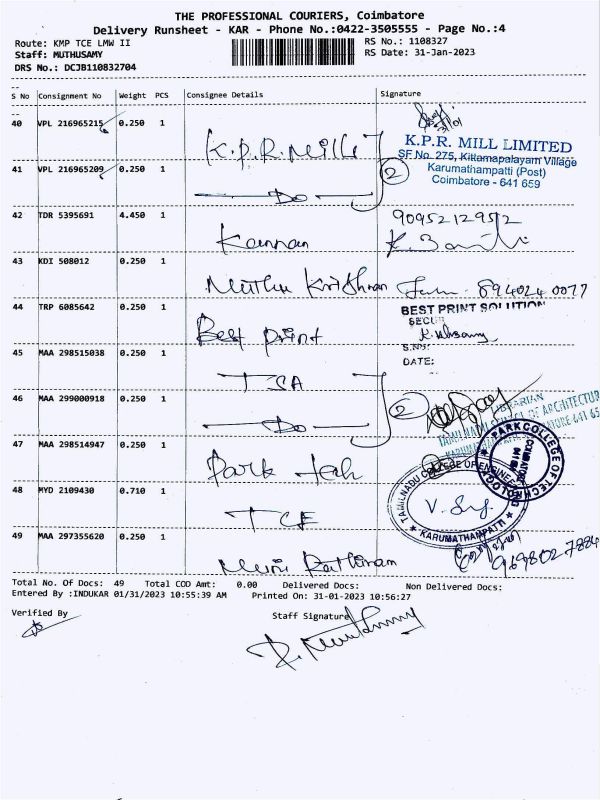 THE PROFESSIONAL COURIERS, Coimbatore
Delivery Runsheet - KAR - Phone No.:0422-3505555 - Page No.:4
Route: KMP TCE LMW II
RS No.: 1108327
Staff: MUTHUSAMY
RS Date: 31-Jan-2023
DRS No.: DCJB110832704
S No Consignment No Weight PCS Consignee Details Signature
40 VPL 216965215 0.250 1 K.P.R. Mills
K.P.R. MILL LIMITED
SF No. 275, Kittampalayam Village
Karumathampatti (Post)
Coimbatore - 641 659
41 VPL 216965209 0.250 1 Do 2
42 TDR 5395691 4.450 1 Kannan
9095212952
43 KDI 508012 0.250 1 Muthu Krishnan 8940240077
44 TRP 6085642 0.250 1 Best Print
BEST PRINT SOLUTION
DATE:
45 MAA 298515038 0.250 1 TSA
46 MAA 299000918 0.250 1 Do 2
LIBRARIAN
47 MAA 298514947 0.250 1 Park tech
PARK COLLEGE OF TECHNOLOGY
COIMBATORE
48 MYD 2109430 0.710 1 TCE
TAMILNADU COLLEGE OF ENGINEERING
KARUMATHAMPATTI
49 MAA 297355620 0.250 1 Muni Rathinam
9698027884
Total No. Of Docs: 49 Total COD Amt: 0.00 Delivered Docs: Non Delivered Docs:
Entered By :INDUKAR 01/31/2023 10:55:39 AM Printed On: 31-01-2023 10:56:27
Verified By
Staff Signature